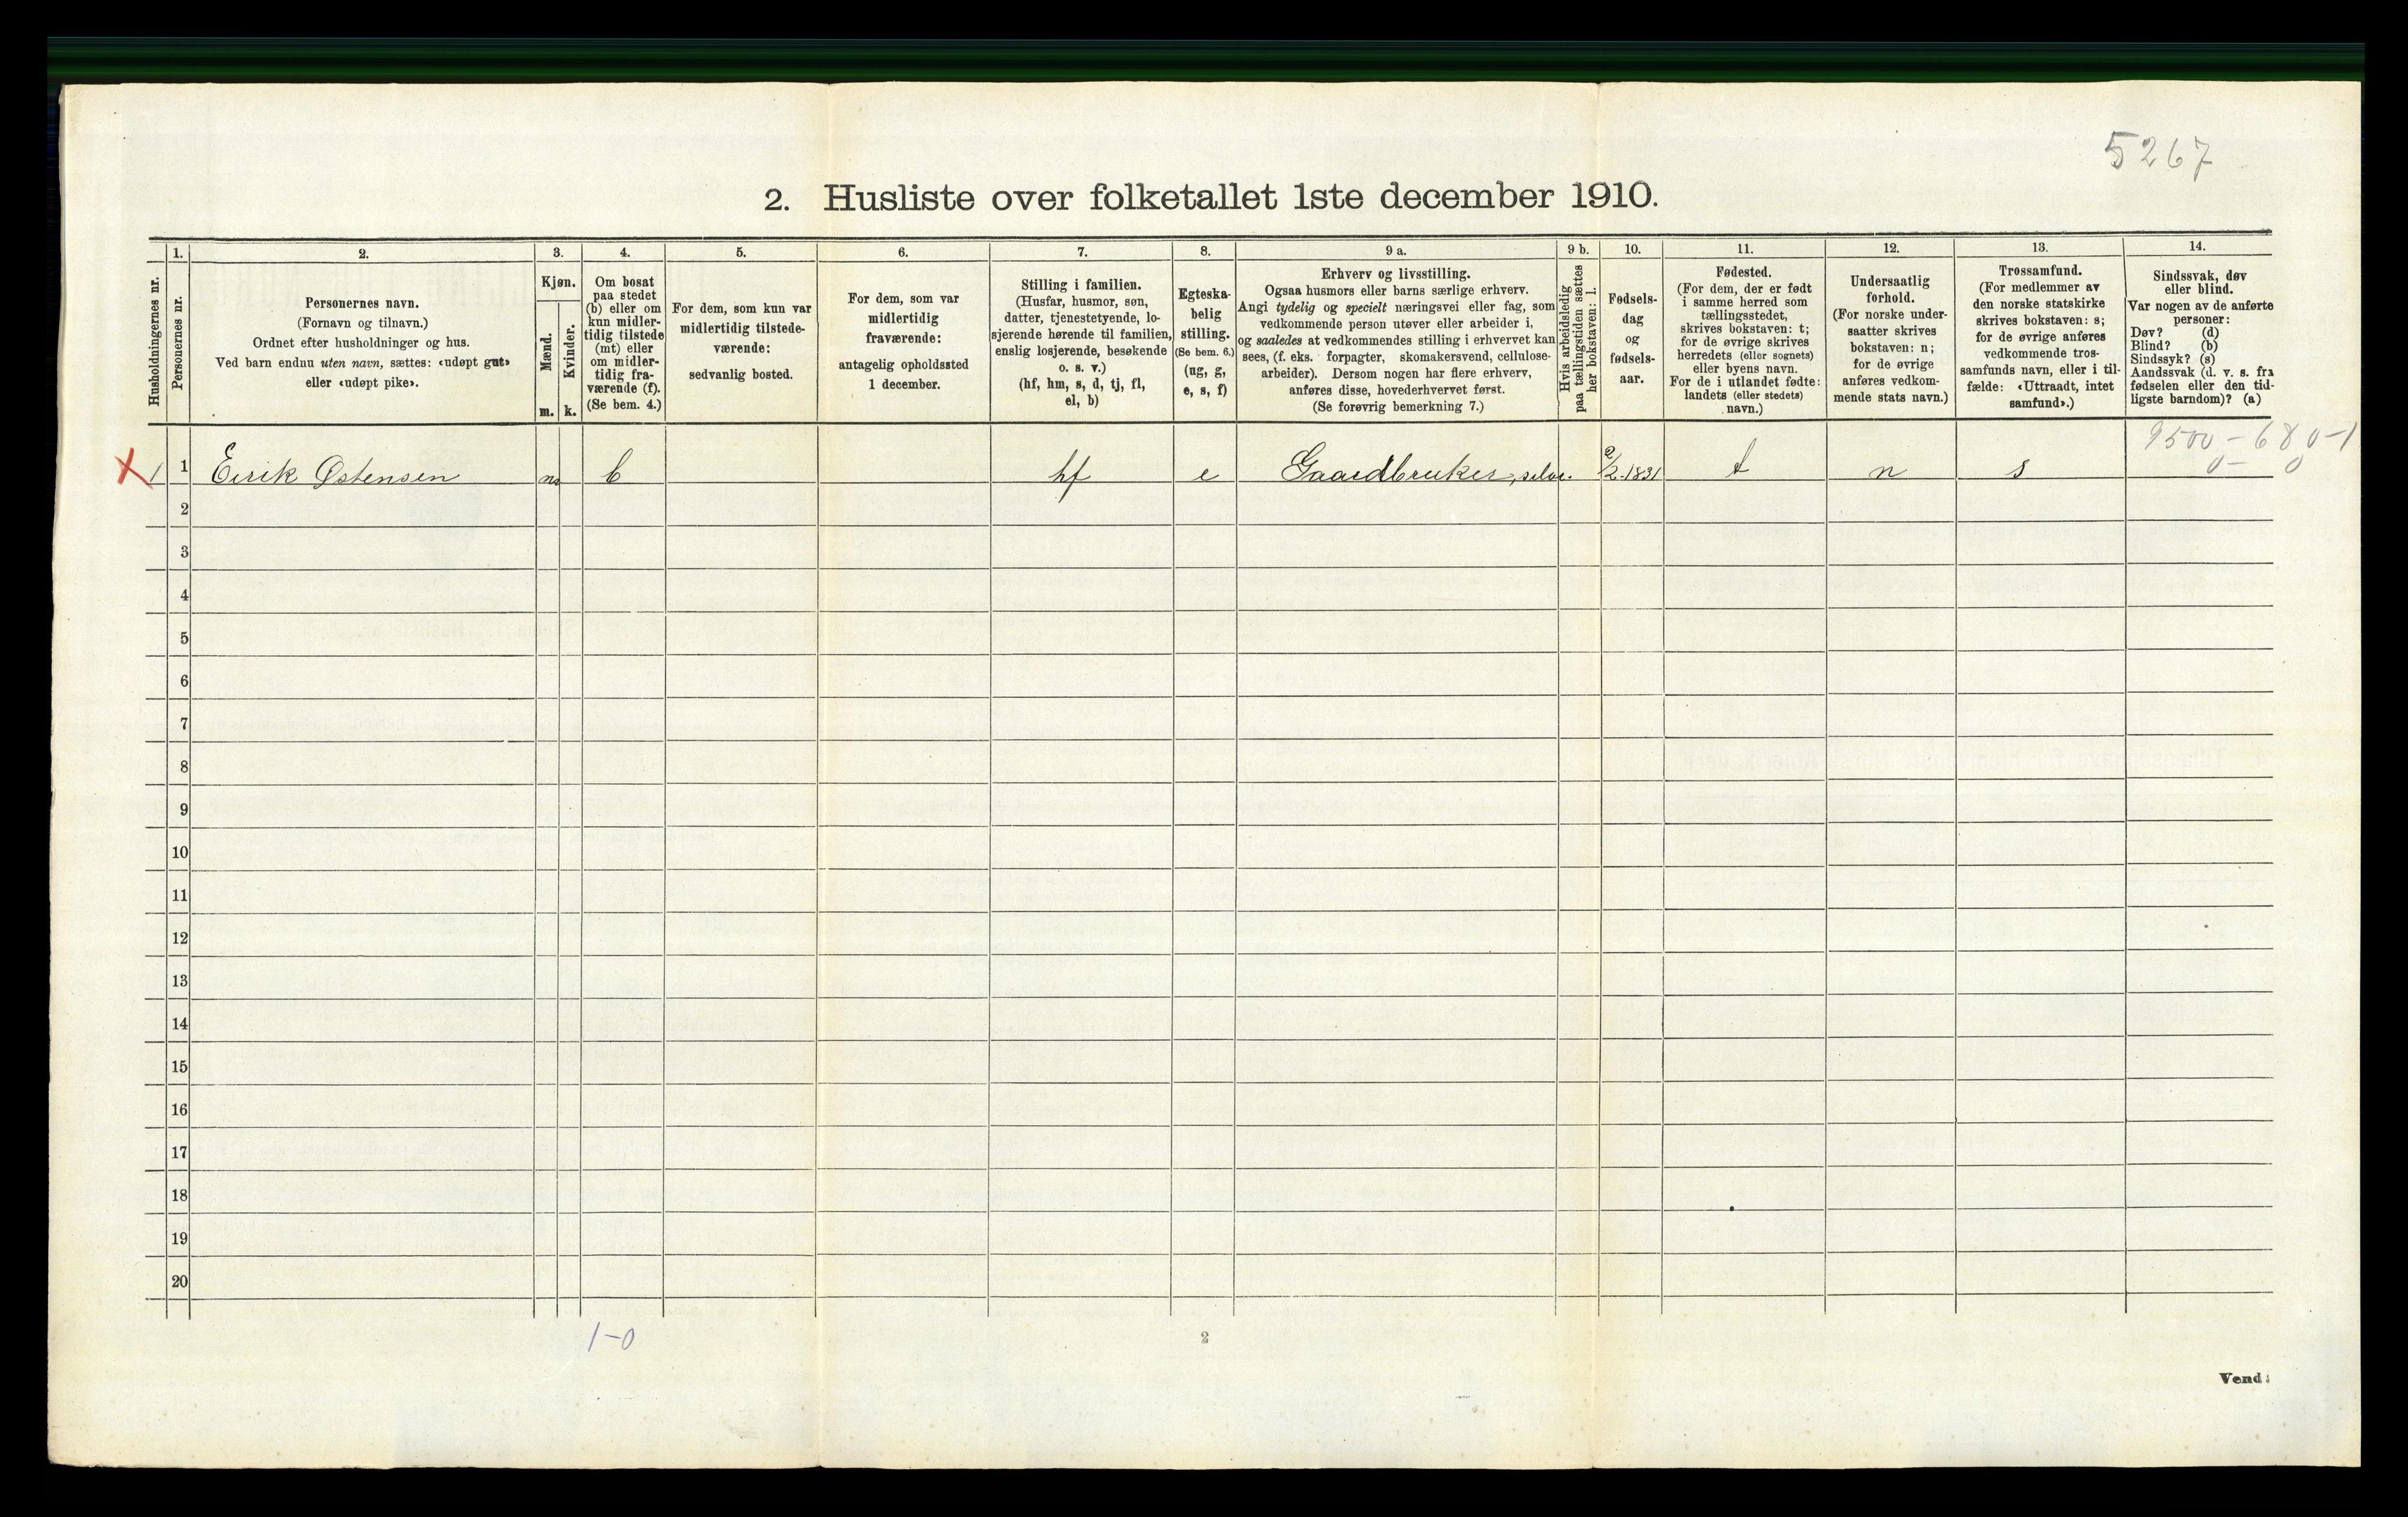 5267
2. Husliste over folketallet 1ste december 1910.
Husholdningernes nr.
1.
Personernes nr.
2.
Personernes navn.
(Fornavn og tilnavn.)
Ordnet efter husholdninger og hus.
Ved barn endnu uten navn, sættes: «udøpt gut»
eller «udøpt pike».
3.
Kjøn.
Mænd.
m.
Kvinder.
k.
4.
Om bosat
paa stedet
(b) eller om
kun midler-
tidig tilstede
(mt) eller
om midler-
tidig fra-
værende (f).
(Se bem. 4.)
5.
For dem, som kun var
midlertidig tilstede-
værende:
sedvanlig bosted.
6.
For dem, som var
midlertidig
fraværende:
antagelig opholdssted
1 december.
7.
Stilling i familien.
(Husfar, husmor, søn,
datter, tjenestetyende, lo-
sjerende hørende til familien,
enslig losjerende, besøkende
o. s. v.)
(hf, hm, s, d, tj, fl,
el, b)
8.
Egteska-
belig
stilling.
(Se bem. 6.)
(ug, g,
e, s, f)
9 a.
Erhverv og livsstilling.
Ogsaa husmors eller barns særlige erhverv.
Angi tydelig og specielt næringsvei eller fag, som
vedkommende person utøver eller arbeider i,
og saaledes at vedkommendes stilling i erhvervet kan
sees, (f. eks. forpagter, skomakersvend, cellulose-
arbeider). Dersom nogen har flere erhverv,
anføres disse, hovederhvervet først.
(Se forøvrig bemerkning 7.)
9 b.
Hvis arbeidsledig
paa tællingstiden sættes
her bokstaven: l.
10.
Fødsels-
dag
og
fødsels-
aar.
11.
Fødested.
(For dem, der er født
i samme herred som
tællingsstedet,
skrives bokstaven: t;
for de øvrige skrives
herredets (eller sognets)
eller byens navn.
For de i utlandet fødte:
landets (eller stedets)
navn.)
12.
Undersaatlig
forhold.
(For norske under-
saatter skrives
bokstaven: n;
for de øvrige
anføres vedkom-
mende stats navn.)
13.
Trossamfund.
(For medlemmer av
den norske statskirke
skrives bokstaven: s;
for de øvrige anføres
vedkommende tros-
samfunds navn, eller i til-
fælde: «Uttraadt, intet
samfund».)
14.
Sindssvak, døv
eller blind.
Var nogen av de anførte
personer:
Døv? (d)
Blind? (b)
Sindssyk? (s)
Aandssvak (d. v. s. fra
fødselen eller den tid-
ligste barndom)? (a)
9500-680-1
0- 0
X 1 1 Eirik Østensen m b hf e Gaardbruker, selve. 2/2-1831 t n s
2
3
4
5
6
7
8
9
10
11
12
13
14
15
16
17
18
19
20
1-0
2
Vend!